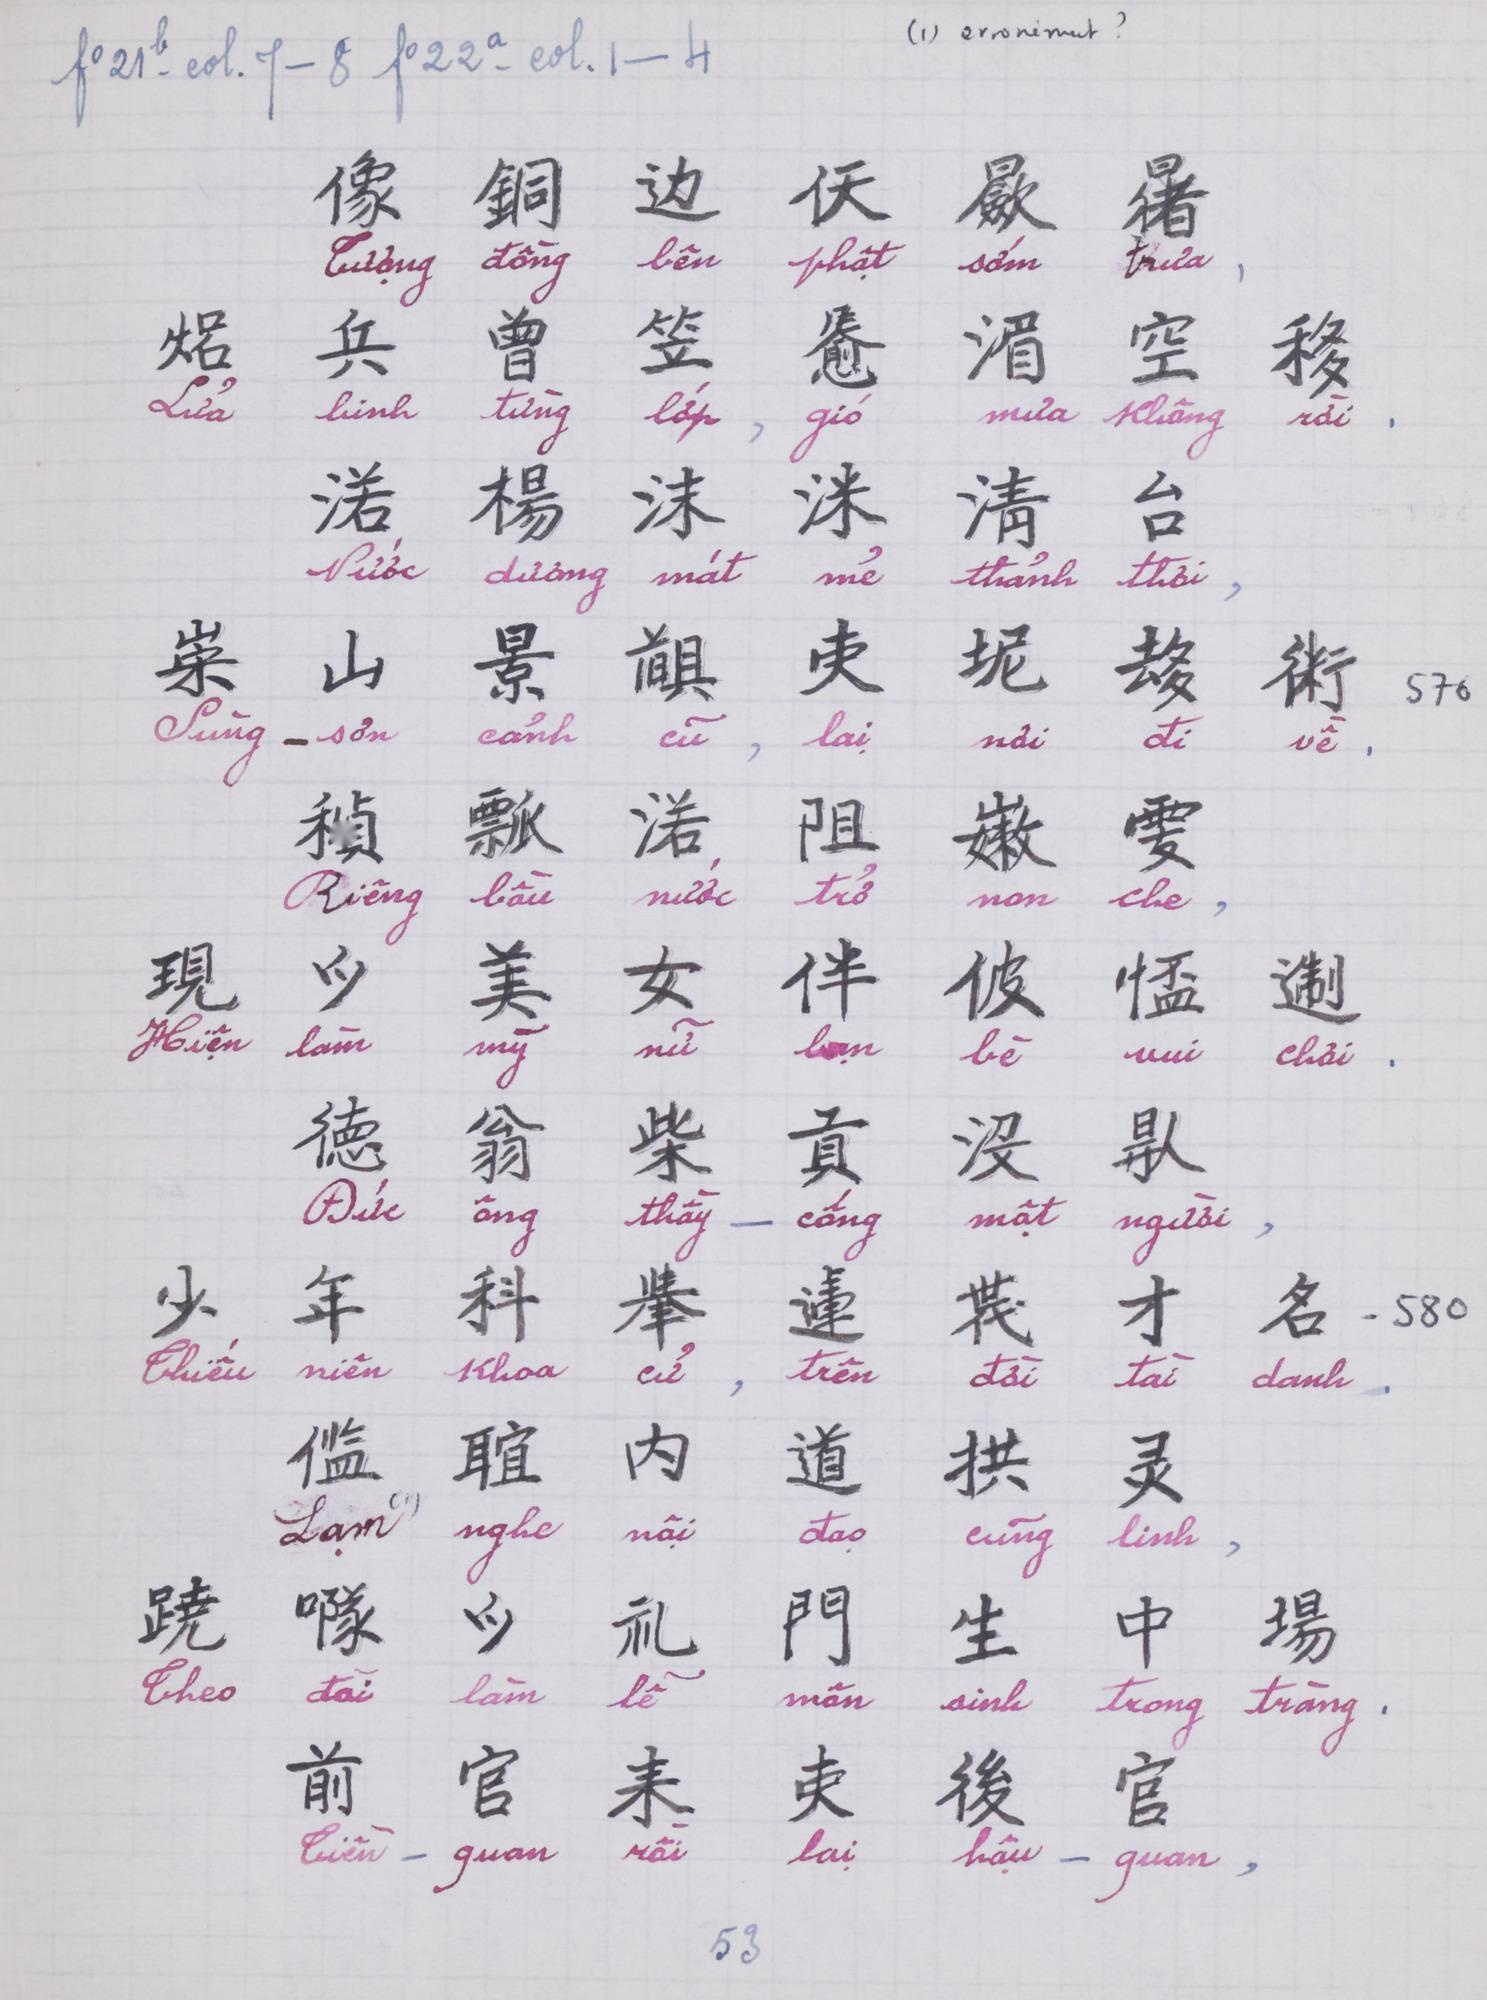 fº 21ᵇ- col. 7 – 8 fº 22ᵃ- col. 1 – 4
(1) erronément ?
像 銅 边 伕
Tượng đồng bên phật sớm trưa ,
焒 兵 曾 笠 湄 空 移
Lửa binh từng lớp , gió mưa không rời .
渃 楊 沫 洣 清 台
Nước dương mát mẻ thảnh thơi ,
崇 山 景 吏 坭 術 576
Sùng - sơn cảnh cũ , lại nơi đi về .
瓢 渃 阻 嫩
Riêng bầu nước trở non che ,
現 美 女 伴 彼
Hiện làm mỹ nữ bạn bè vui chơi .
徳 翁 柴 貢 没
Đức ông thầy – cống một người ,
少 年 科 才 名 - 580
Thiếu niên khoa cử , trên đời tài danh .
内 道 拱 灵
Lạm⁽¹⁾ nghe nội đạo cũng linh ,
蹺 礼 門 生 中 場
Theo đòi làm lễ môn sinh trong tràng .
前 官 耒 吏 後 官
Tiền – quan rồi lại hậu – quan ,
53